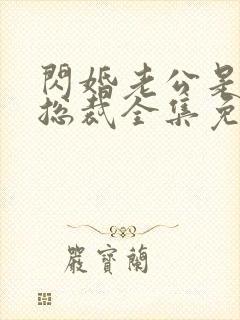 閃婚老公是
總裁全集免
嚴寶蘭